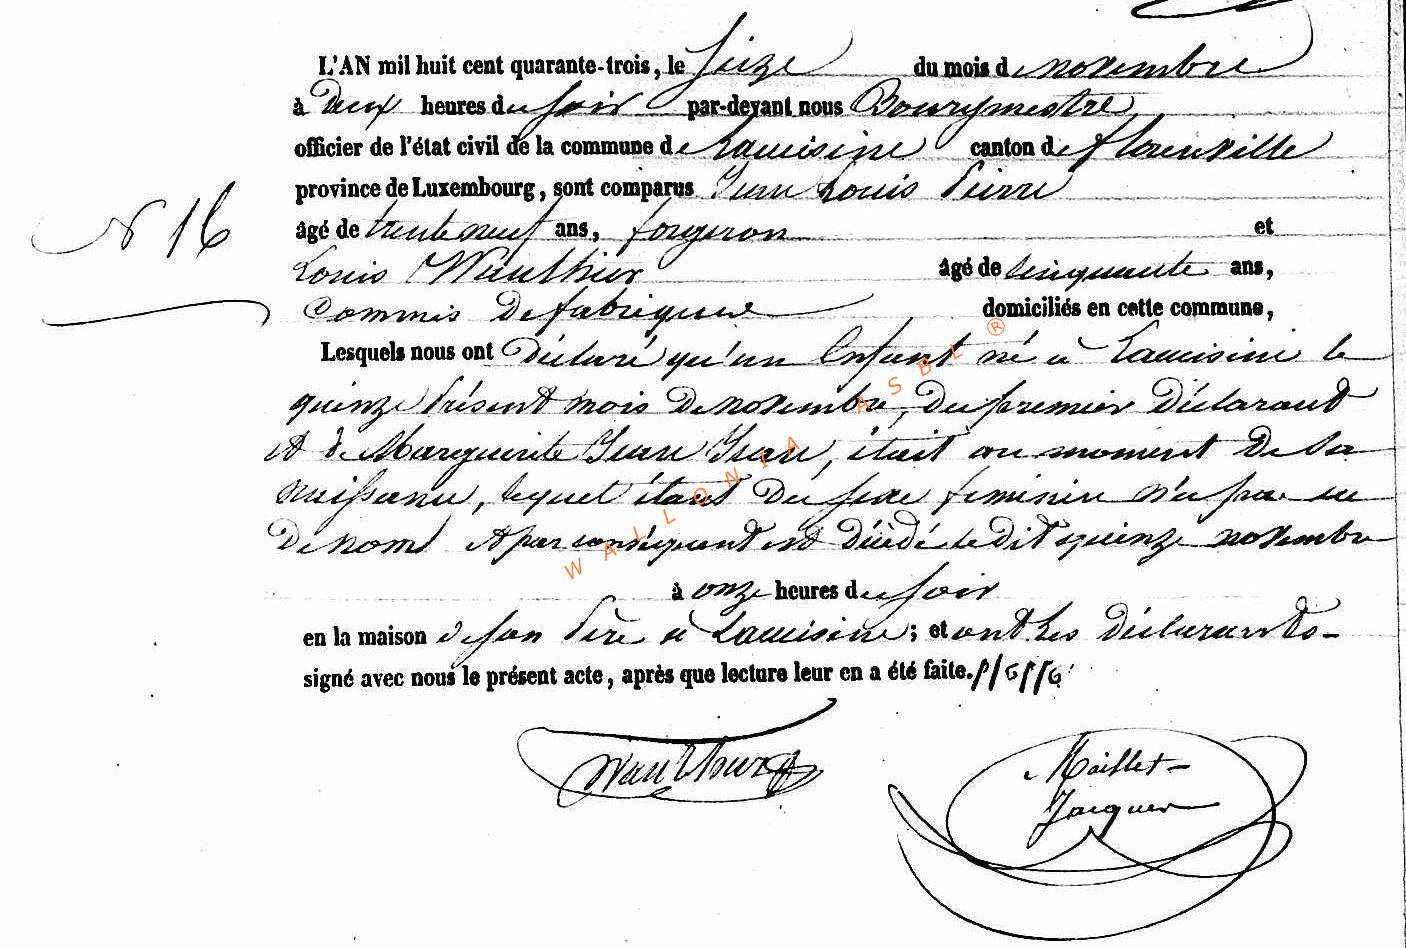 L'AN mil huit cent quarante-trois, le seize du mois de novembre
à deux heures du soir par-devant nous Bourgmestre
officier de l'état civil de la commune de Lacuisine canton de florenville
province de Luxembourg, sont comparus Jean Louis Pierre
âgé de trente neuf ans, forgeron et
N 16
Louis Wauthier âgé de cinquante ans,
Commis de fabrique domiciliés en cette commune,
Lesquels nous ont déclaré qu'un Enfant né à Lacuisine le
quinze Présent mois de novembre, du premier déclarant
et de Marguerite Jean Jean, était au moment de sa
naissance, lequel étant du sexe feminin n'a pas eu
de nom et par conséquent est décédé le dit quinze novembre
à onze heures du soir
en la maison de son Père à Lacuisine; et ont les déclarants
signé avec nous le présent acte, après que lecture leur en a été faite.
WALLONIA ASBL ®
Wauthier
Maillet-
Jacques